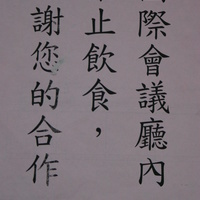 際會議廳內
止飲食，
謝您的合作